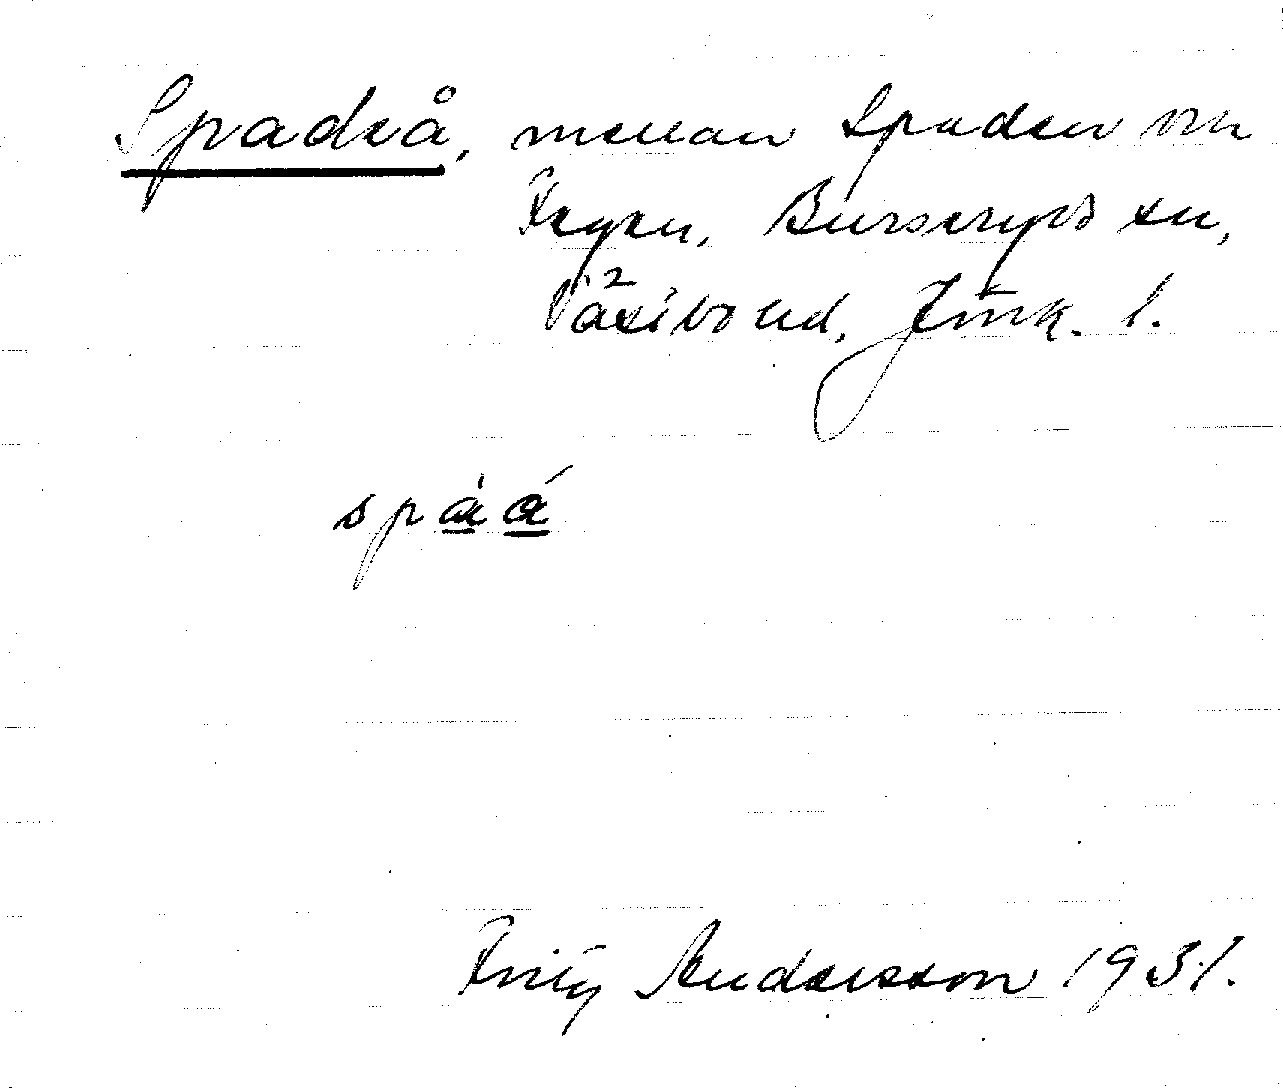 Spadeå, mellan Spaden och
Fegen, Burseryds sn,
Västbo hd, Jönk. l.
spàá
Fritz Andersson 1931.